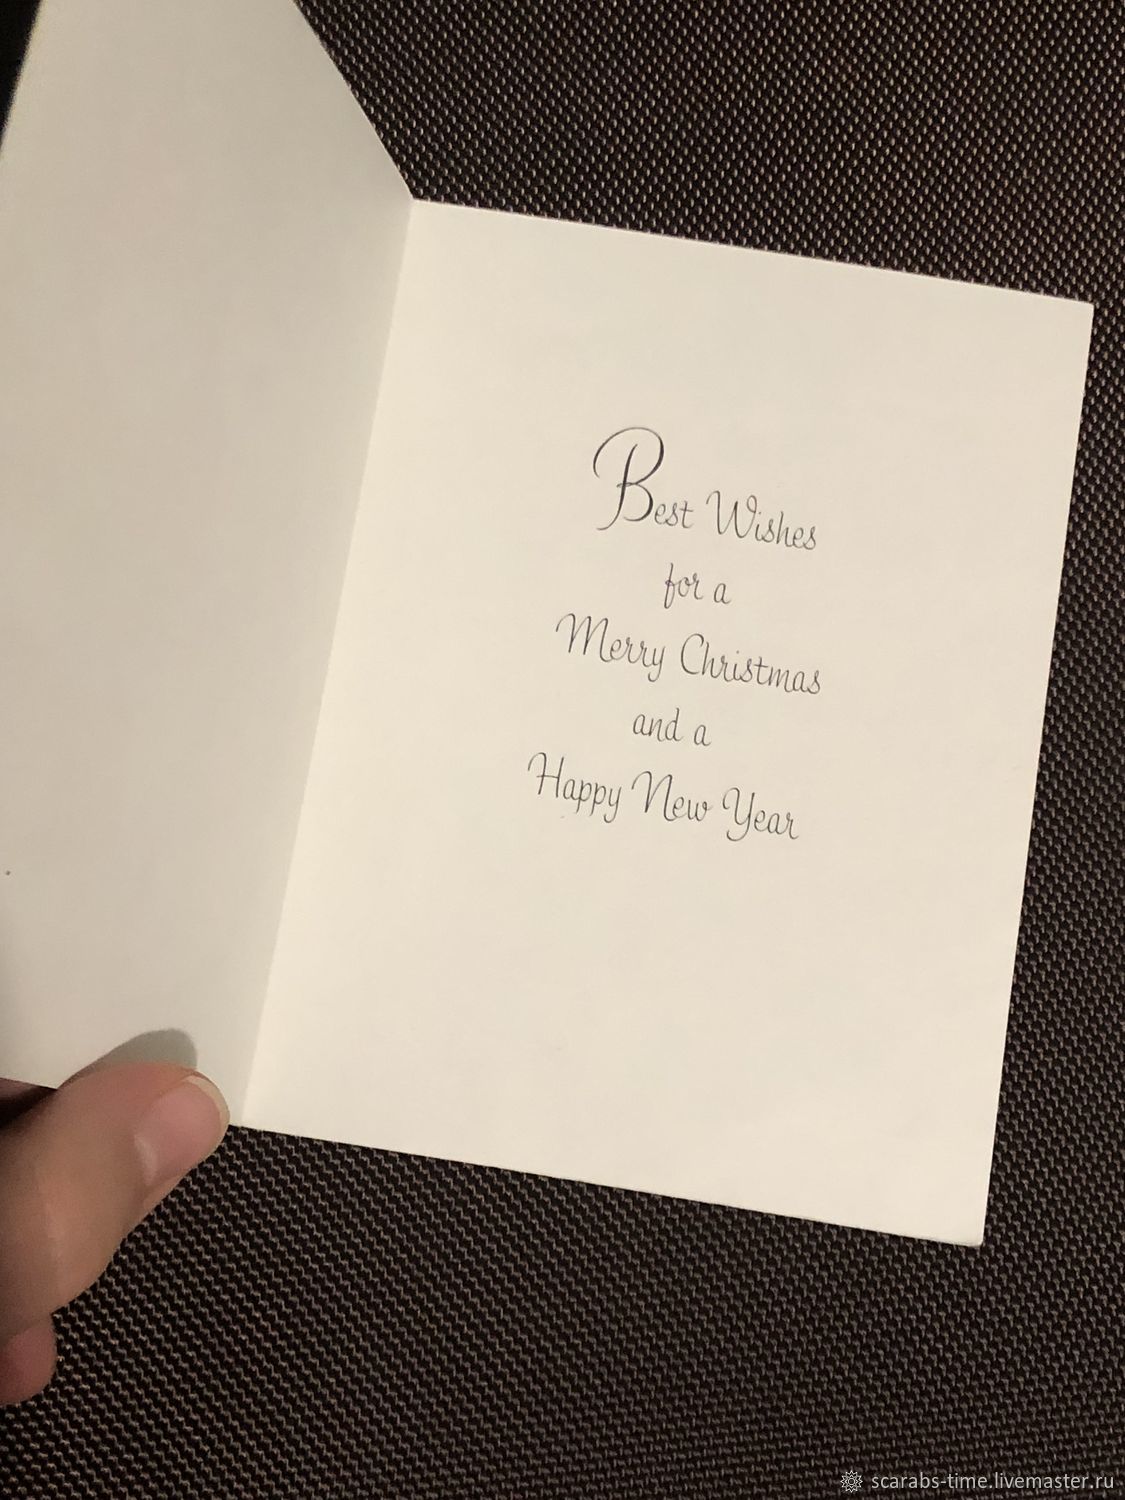 Best Wishes
for a
Merry Christmas
and a
Happy New Year
scarabs-time.livemaster.ru